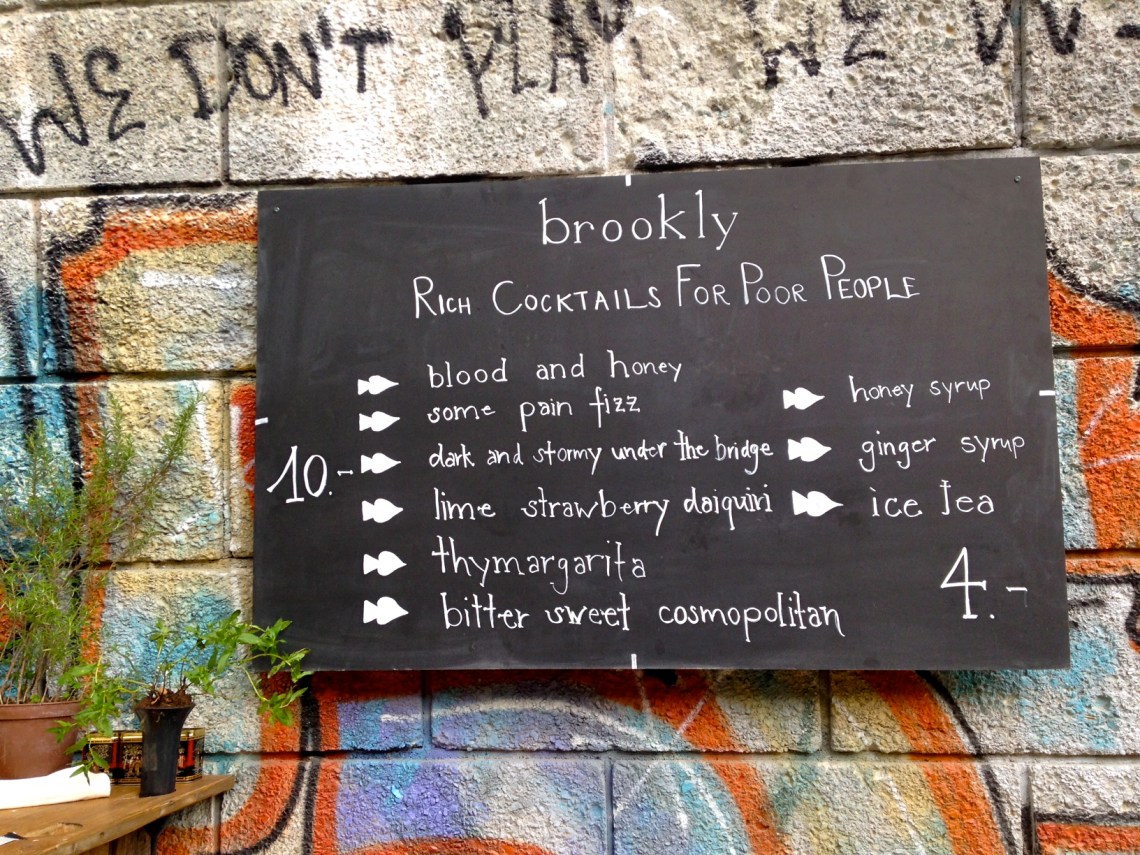 WE DON'T PLAY, WE
brookly
RICH COCKTAILS FOR POOR PEOPLE
blood and honey
some pain fizz
dark and stormy under the bridge
lime strawberry daiquiri
thymargarita
bitter sweet cosmopolitan
10.-
honey syrup
ginger syrup
ice tea
4.-